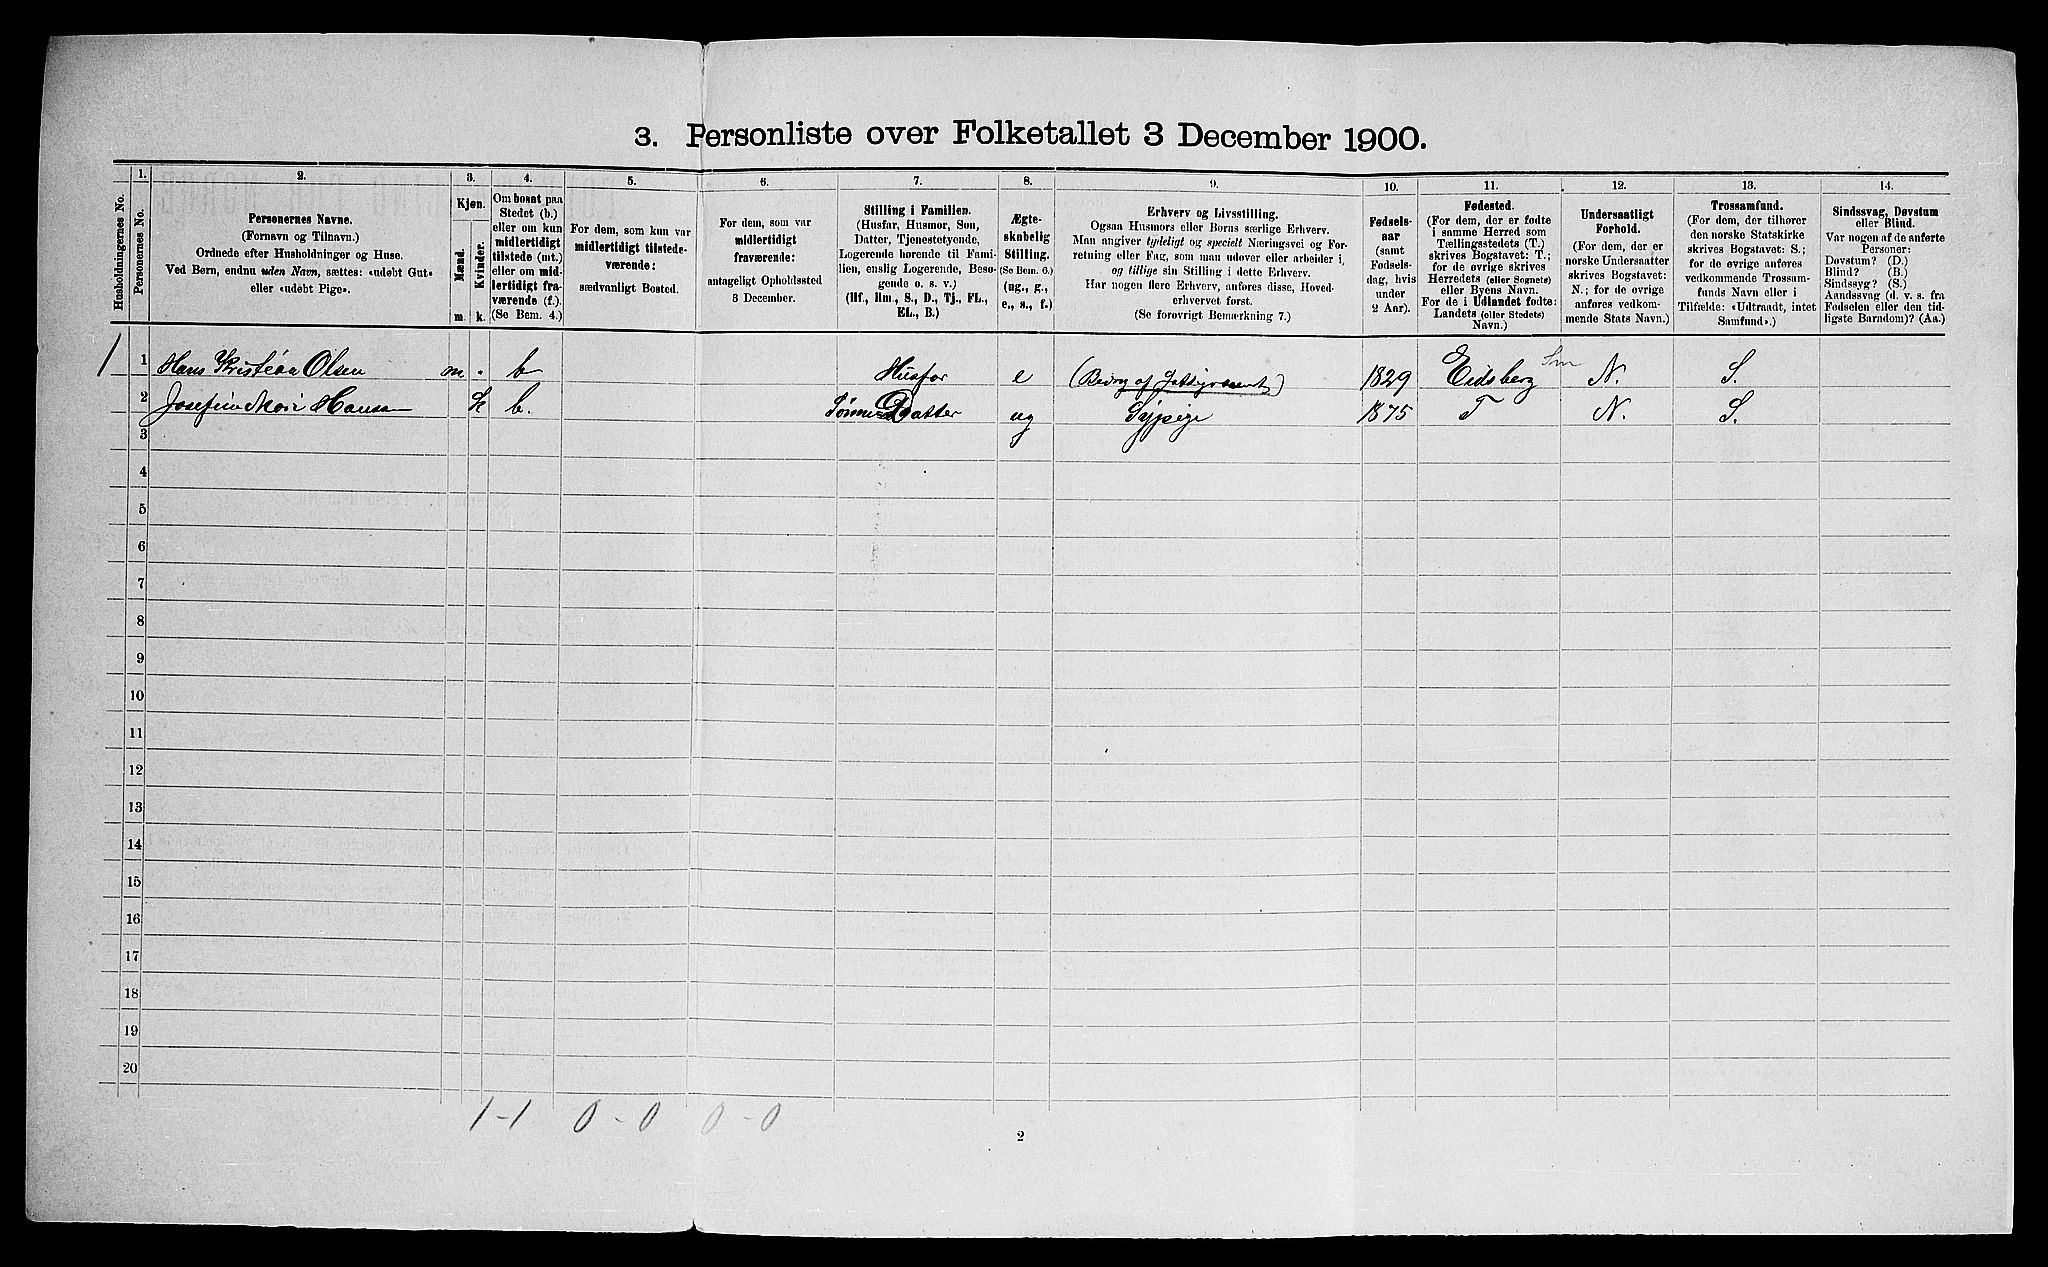 3. Personliste over Folketallet 3 December 1900.
Husholdningernes No.
1.
Personernes No.
2.
Personernes Navne.
(Fornavn og Tilnavn.)
Ordnede efter Husholdninger og Huse.
Ved Børn, endnu uden Navn, sættes: «udøbt Gut»
eller «udøbt Pige».
3.
Kjøn.
Mænd.
Kvinder.
m.
k.
4.
Om bosat paa
Stedet (b.)
eller om kun
midlertidigt
tilstede (mt.)
eller om mid-
lertidigt fra-
værende (f.).
(Se Bem. 4.)
5.
For dem, som kun var
midlertidigt tilstede-
værende:
sædvanligt Bosted.
6.
For dem, som var
midlertidigt
fraværende:
antageligt Opholdssted
3 December.
7.
Stilling i Familien.
(Husfar, Husmor, Søn,
Datter, Tjenestetyende,
Logerende hørende til Fami-
lien, enslig Logerende, Besø-
gende o. s. v.)
(Hf., Hm., S., D., Tj., FL.,
EL., B.)
8.
Ægte-
skabelig
Stilling.
(Se Bem. 6.)
(ug., g.,
e., s., f.)
9.
Erhverv og Livsstilling.
Ogsaa Husmors eller Børns særlige Erhverv.
Man angiver tydeligt og specielt Næringsvei og For-
retning eller Fag, som man udøver eller arbeider i,
og tillige sin Stilling i dette Erhverv.
Har nogen flere Erhverv, anføres disse, Hoved-
erhvervet først.
(Se forøvrigt Bemærkning 7.)
10.
Fødsels-
aar
(samt
Fødsels-
dag, hvis
under
2 Aar).
11.
Fødested.
(For dem, der er fødte
i samme Herred som
Tællingsstedets (T.)
skrives Bogstavet: T.;
for de øvrige skrives
Herredets (eller Sognets)
eller Byens Navn.
For de i Udlandet fødte:
Landets (eller Stedets)
Navn.)
12.
Undersaatligt
Forhold.
(For dem, der er
norske Undersaatter
skrives Bogstavet:
N.; for de øvrige
anføres vedkom-
mende Stats Navn.)
13.
Trossamfund.
(For dem, der tilhører
den norske Statskirke
skrives Bogstavet: S.;
for de øvrige anføres
vedkommende Trossam-
funds Navn eller i
Tilfælde: «Udtraadt, intet
Samfund».)
14.
Sindssvag, Døvstum
eller Blind.
Var nogen af de anførte
Personer:
Døvstum? (D.)
Blind? (B.)
Sindssyg? (S.)
Aandssvag (d. v. s. fra
Fødselen eller den tid-
ligste Barndom)? (Aa.)
1 1 Hans Kristian Olsen m. b Husfar e 1829 Eidsberg Sm N. S.
2 Josefine Mari Hansen k b. Sønne Datter ug Sypige 1875 T N. S.
3
4
5
6
7
8
9
10
11
12
13
14
15
16
17
18
19
20
1-1 0-0 0-0
2